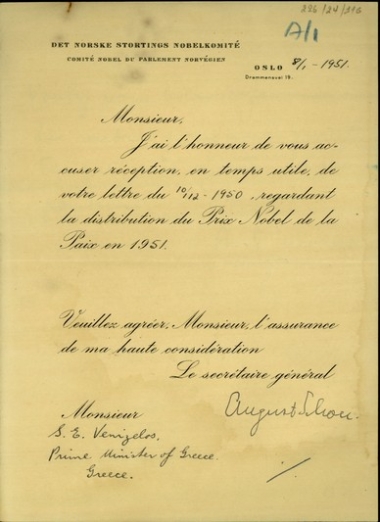 236/24/116
A/1
DET NORSKE STORTINGS NOBELKOMITÉ
COMITÉ NOBEL DU PARLEMENT NORVÉGIEN
OSLO 8/1 - 1951.
Drammensvei 19.
Monsieur,
J'ai l'honneur de vous ac-
cuser réception, en temps utile, de
votre lettre du 10/12 - 1950, regardant
la distribution du Prix Nobel de la
Paix en 1951.
Veuillez agréer, Monsieur, l'assurance
de ma haute considération
Le secrétaire général
August Schou.
Monsieur
S. E. Venizelos,
Prime Minister of Greece.
Greece.